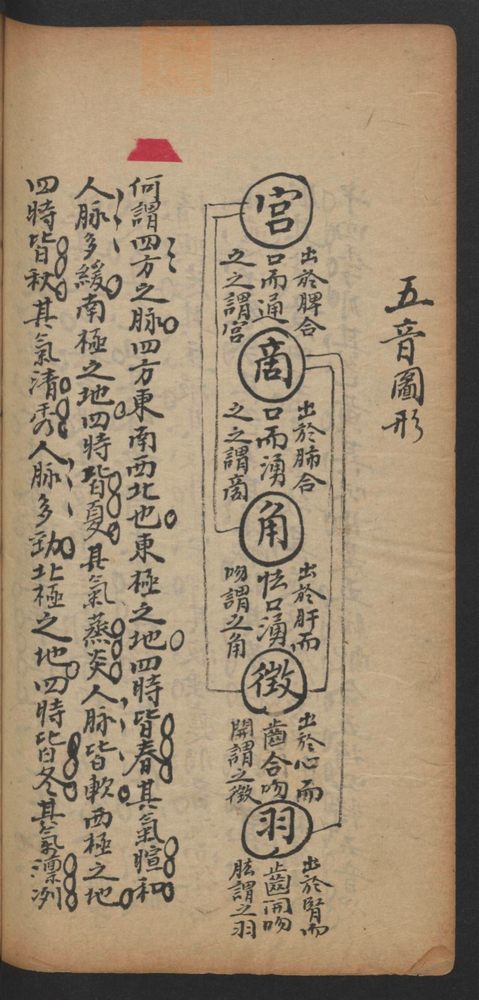 五音圖形
宮
出於脾合
口而通
之之謂宮
商
出於肺合
口而湧
之之謂商
角
出於肝而
怯口湧
吻謂之角
徵
出於心而
齒合吻
開謂之徵
羽
出於腎而
齒開吻
謂之羽
何謂四方之脉四方東南西北也東極之地四時皆春其氣暄和
人脉多緩南極之地四時皆夏其氣蒸炎人脉皆軟西極之地
四時皆秋其氣清秀人脉多勁北極之地四時皆冬其氣凛冽